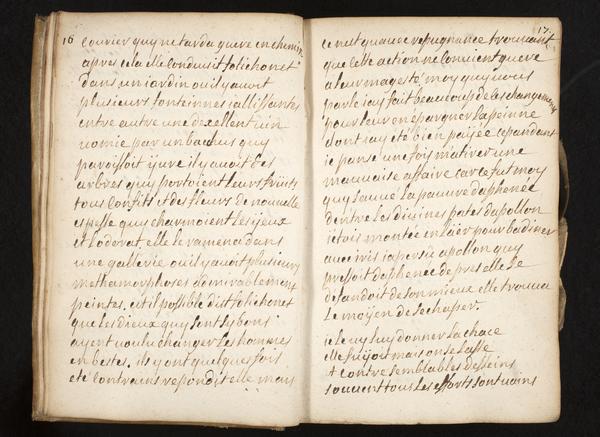 16
courier quy ne tarda guere en chemin
apres cela elle conduisit folichonet
dans un iardin ou il y auoit
plusieurs fonteinnes iallissantes
entre autre une dexellent uin
uomie par un bachus quy
paroissoit yure il y auoit des
arbres quy portoient leurs fruits
tous confits et des fleurs de nouuelle
espesse quy charmoient les yeux
et lodorat elle le ramena dans
une gallerie ou il y auoit plusieurs
methamorphoses admirablement
peintes. est il possible dist folichonet
que les dieux quy sont sy bons
ayent uoulu changer les hommes
en bestes. ils y ont quelques fois
eté contrains respondit elle mais
17.
ce nest qu auec repugnance trouuant
que cette action ne conuient guere
a leur mageste moy quy uous
parle iay fait beaucoup de ces changemens
pour leur en epargner la peinne
dont iay eté bien payée cependant
ie pensé une fois matirer une
mauuaise affaire car ce fut moy
quy sauué la pauure daphenée
dentre les diuines pates dapollon
ietois montée en laier pour badiner
auec iris iapersu apollon quy
pressoit daphenée de pres elle se
defandoit de son mieux elle trouua
le moyen de sechaper.
ie le uy luy donner la chace
elle fuyoit mais on se lasse
et contre semblables desseins
souuent tous les efforts sont uains